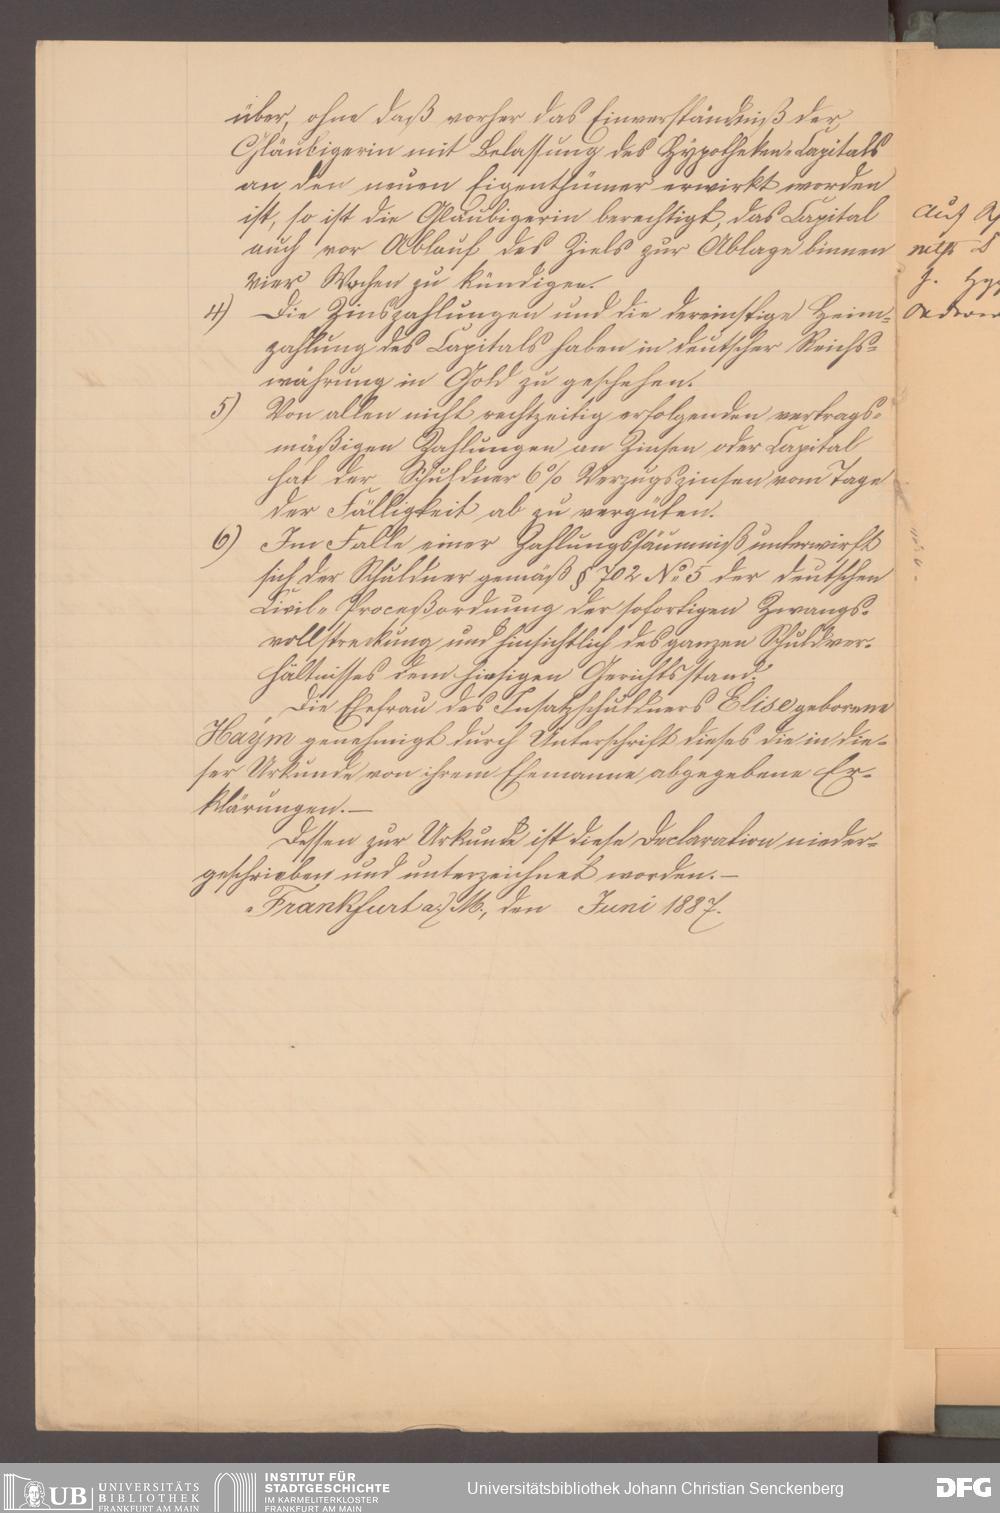 über, ohne daß vorher das Einverständniß der
Gläubigerin mit Belassung des Hypotheken-Capitals
an den neuen Eigenthümer erwirkt worden
ist, so ist die Gläubigerin berechtigt, das Capital
auch vor Ablauf des Ziels zur Ablage binnen
vier Wochen zu kündigen.
4) Die Zinszahlungen und die dereinstige Heim-
zahlung des Capitals haben in deutscher Reichs-
währung in Gold zu geschehen.
5) Von allen nicht rechtzeitig erfolgenden vertrags-
mäßigen Zahlungen an Zinsen oder Capital
hat der Schuldner 6% Verzugszinsen vom Tage
der Fälligkeit ab zu vergüten.
6) Im Falle einer Zahlungssäumniß unterwirft
sich der Schuldner gemäß § 702 No 5 der deutschen
Civil-Proceßordnung der sofortigen Zwangs-
vollstreckung und hinsichtlich des ganzen Schuldver-
hältnisses dem hiesigen Gerichtsstand.
Die Ehefrau des Insatzschuldners Elise geborene
Haym genehmigt durch Unterschrift dieses die in die-
ser Urkunde von ihrem Ehemanne abgegebene Er-
klärungen.—
Dessen zur Urkunde ist diese Declaration nieder-
geschrieben und unterzeichnet worden.—
Frankfurt a/M., den Juni 1887.
Auf
UB UNIVERSITÄTS
BIBLIOTHEK
FRANKFURT AM MAIN
INSTITUT FÜR
STADTGESCHICHTE
IM KARMELITERKLOSTER
FRANKFURT AM MAIN
Universitätsbibliothek Johann Christian Senckenberg
DFG